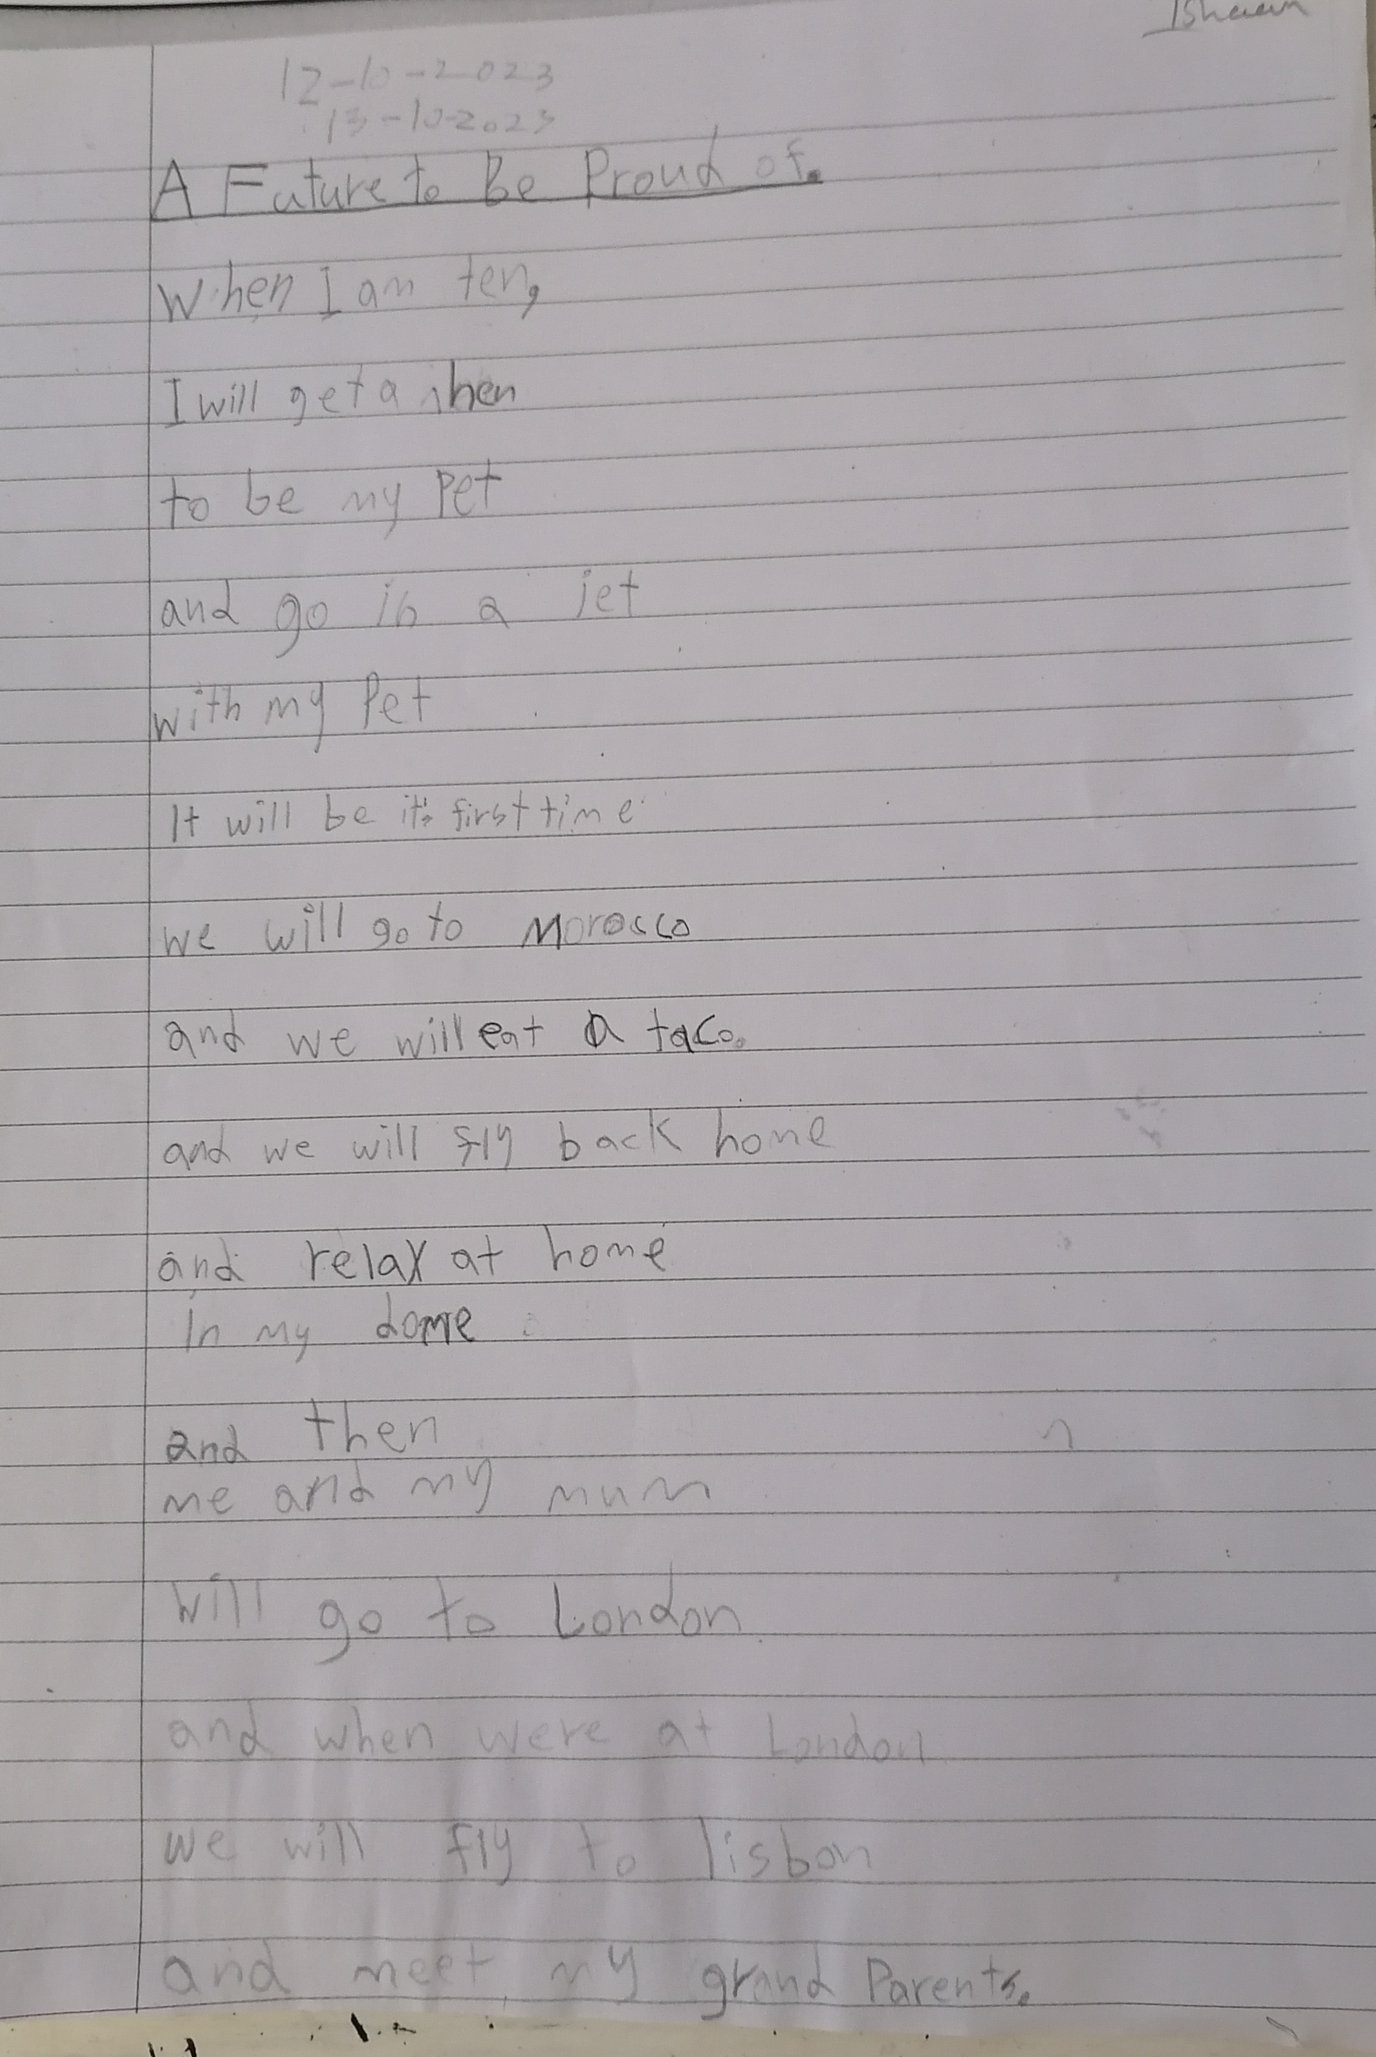 Ishaan
12-10-2023
13-10-2023
A Future to Be Proud of.
When I am ten,
I will get a hen
to be my Pet
and go in a jet
with my Pet
It will be it's first time
we will go to Morocco
and we will eat a taco.
and we will fly back home
and relax at home
in my dome
and then
me and my mum
will go to London
and when were at London
we will fly to lisbon
and meet my grand Parents.